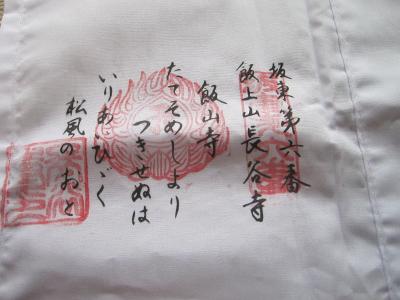 坂東第六番
飯上山長谷寺
飯山寺
たてそめしより
つきせぬは
いりあひひゞく
松風のおと